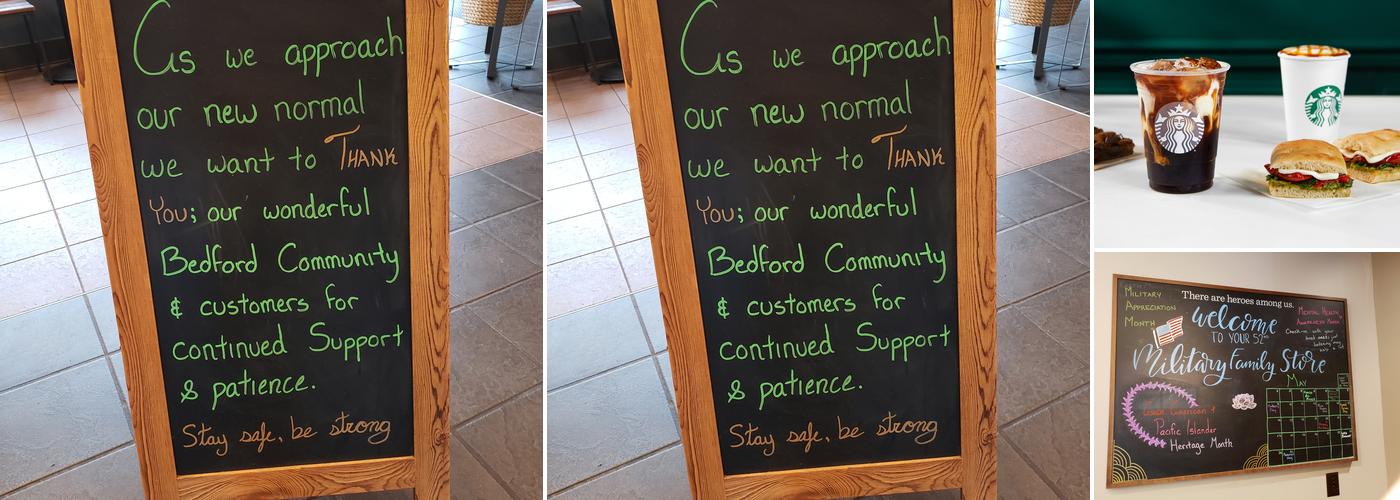 As we approach
our new normal
we want to THANK
You; our wonderful
Bedford Community
& customers for
continued Support
& patience.
Stay safe, be strong
As we approach
our new normal
we want to THANK
You; our wonderful
Bedford Community
& customers for
continued Support
& patience.
Stay safe, be strong
Military
Appreciation
Month
There are heroes among us.
Mental Health
Awareness Month
Check-in with your
welcome
TO YOUR 52ND
Military Family Store
MAY
Asian American &
Pacific Islander
Heritage Month